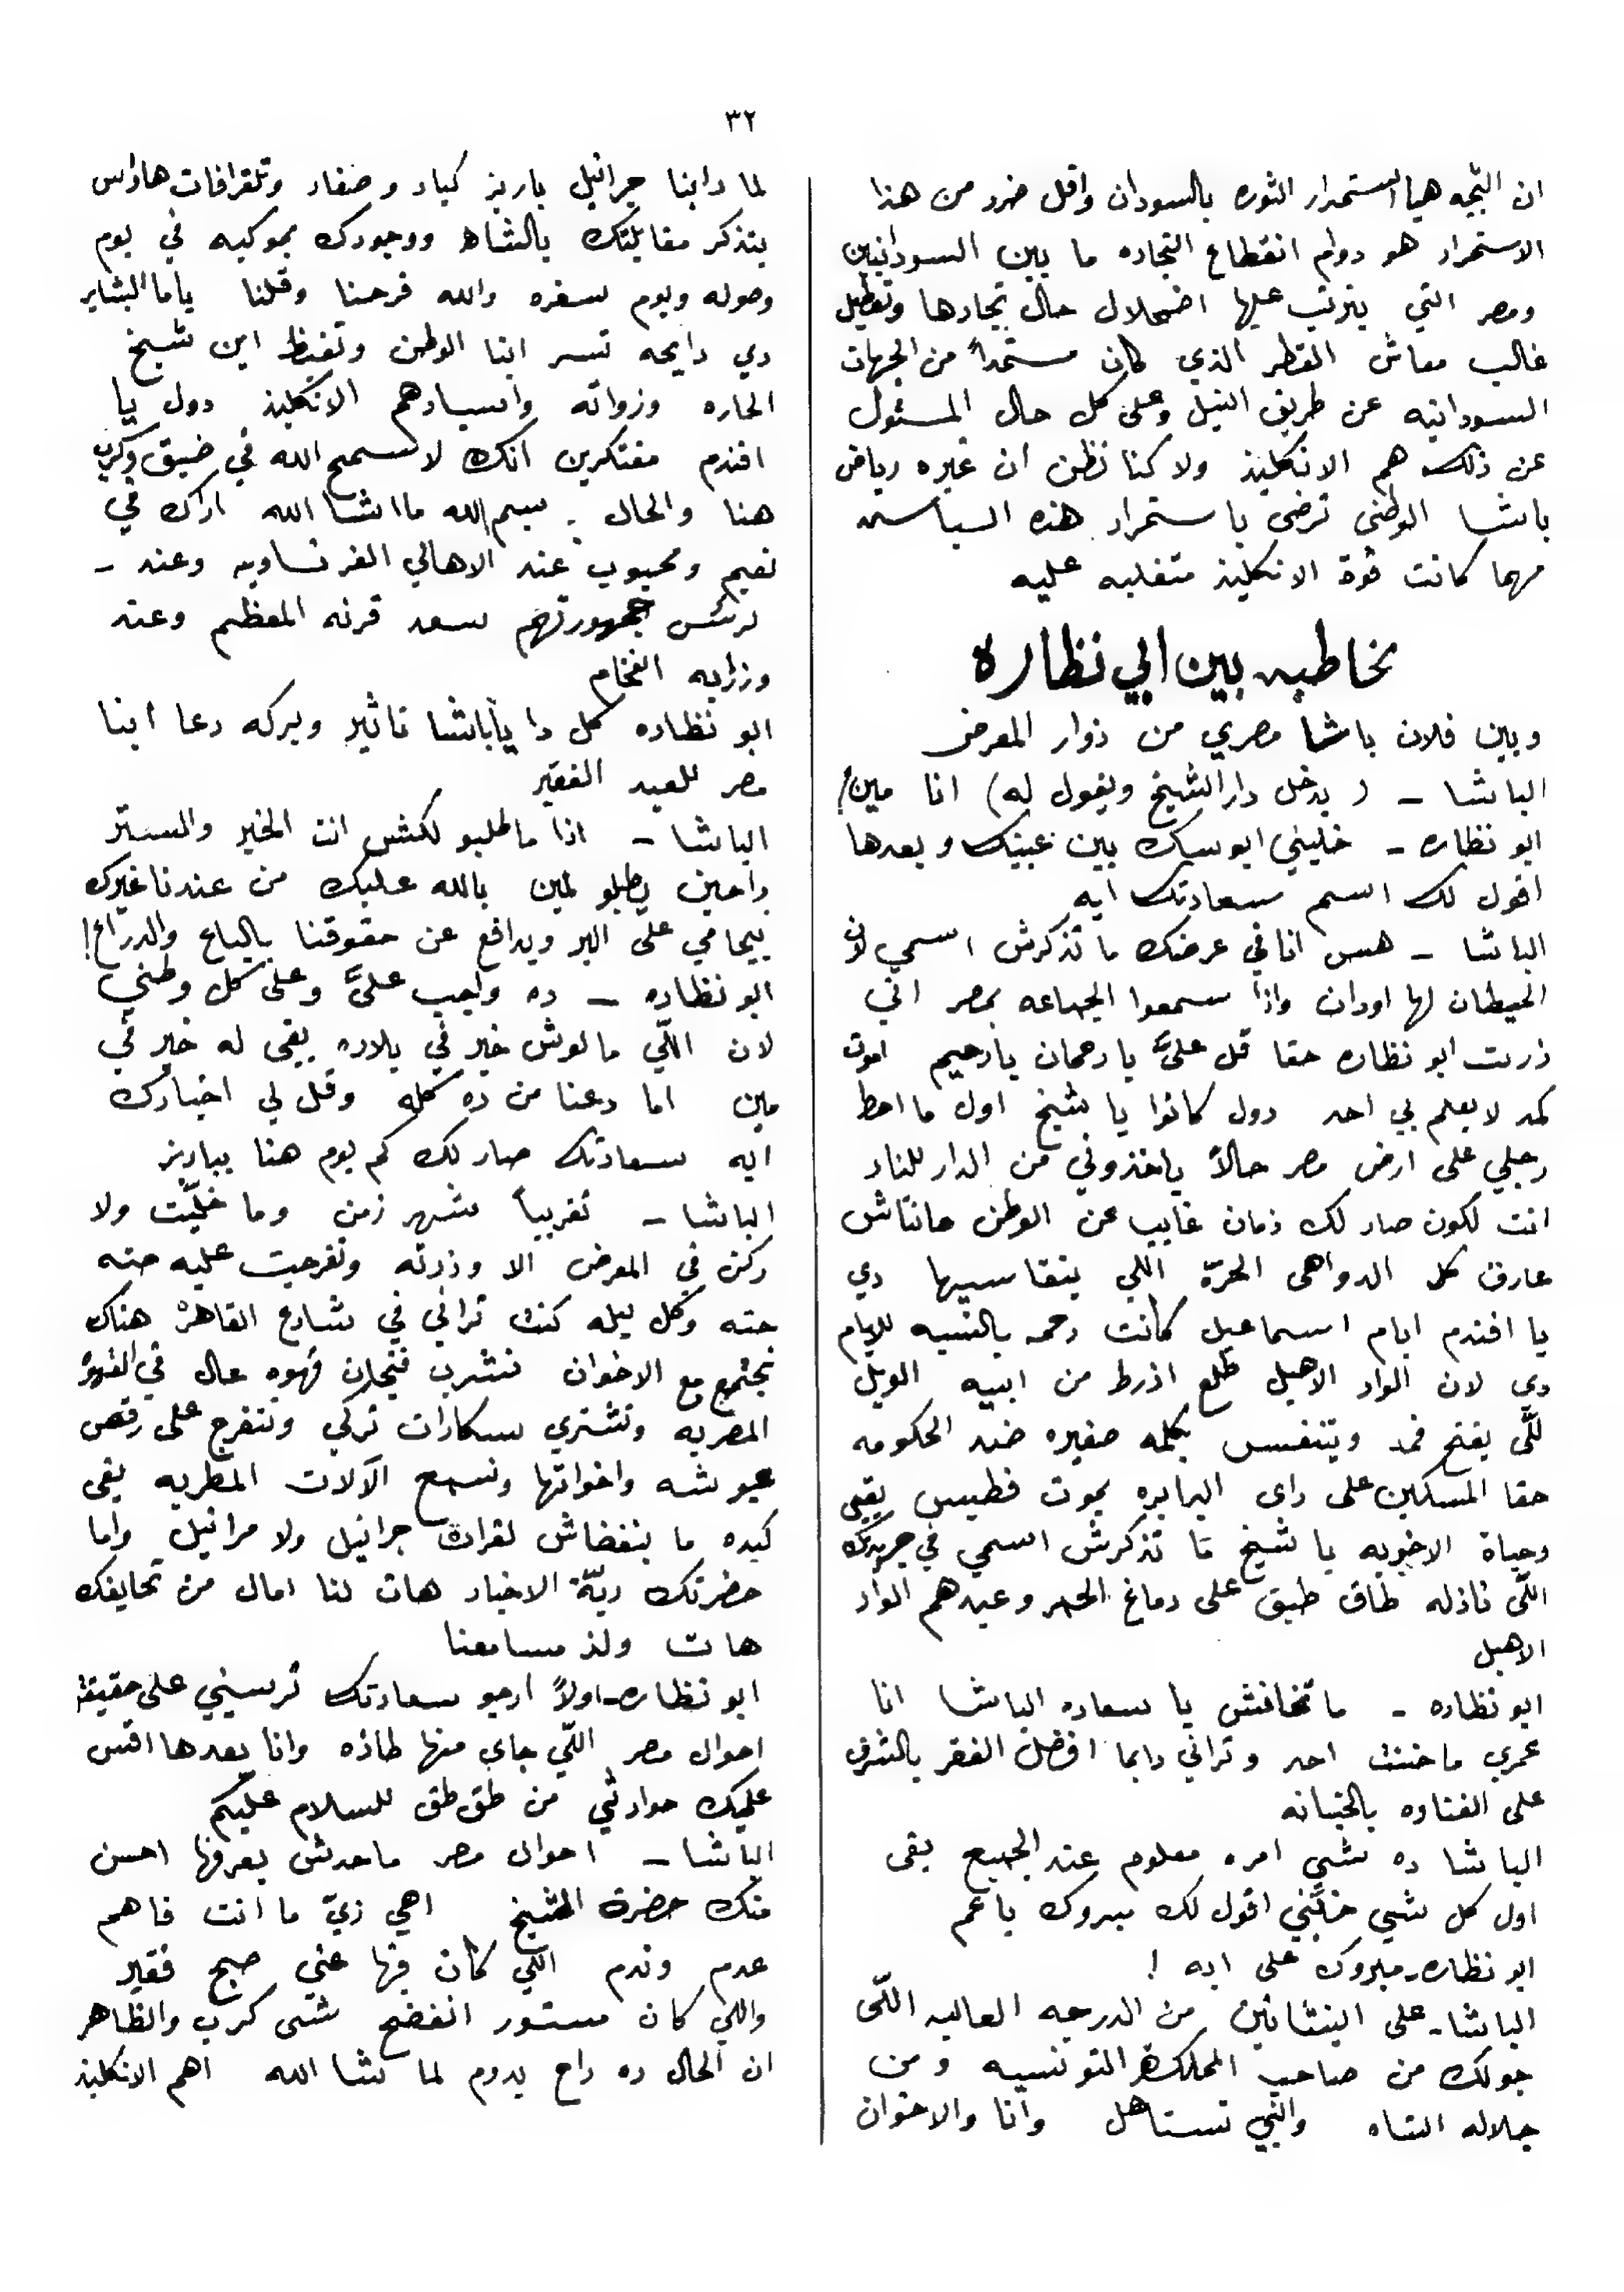 ٣٢
ان النتيجه هي استمرار الثوره بالسودان واقل ضرر من هذا
الاستمرار هو دوام انقطاع التجاره ما بين السودانيين
ومصر التي يترتب عليها اضمحلال حال تجارها وتعطيل
غالب معاش القطر الذي كان مستمداً من الجهات
السودانيه عن طريق النيل وعلى كل حال المسئول
عن ذلك هم الانكليز ولا كنا نظن ان غيره رياض
باشا الوطنى ترضى باستمرار هذه السياسه
مهما كانت قوة الانكليز متغلبه عليه
مخاطبه بين ابي نظاره
وبين فلان باشا مصري من زوار المعرض
الباشا – ( يدخل دار الشيخ ويقول له) انا مين؟
ابو نظاره – خليني ابوسك بين عينيك وبعدها
اقول لك اسم سعادتك ايه
الباشا – هس انا في عرضك ما تذكرش اسمي لان
الحيطان لها اودان واذا سمعوا الجماعه بمصر اني
زرت ابو نظاره حقا قل عليَّ يا رحمان يا رحيم اموت
كمد لا يعلم بي احد دول كانوا يا شيخ اول ما احط
رجلي على ارض مصر حالاً ياخذوني من الدار للنار
انت لكون صار لك زمان غايب عن الوطن مانتاش
عارف كل الدواهى الحرّة اللي بنقاسيها دي
يا افندم ايام اسماعيل كانت رحمه بالنسبه للايام
دي لان الواد الاهبل طلع اذرط من ابيه الويل
للّى يفتح فمه ويتنفس بكلمه صغيره ضد الحكومه
حقا المسكين على راى البرابره يموت فطيس يقى
وحياة الاخويه يا شيخ ما تذكرش اسمي في جريدتك
اللّى نازله طاق طبق على دماغ الحمر وعبدهم الواد
الاهبل
ابو نظاره – ما تخافش يا سعاده الباشا انا
عمري ما خنت احد وتراني دايما افضل الفقر بالشرف
على الغناوه بالخيانه
الباشا ده شي امره معلوم عند الجميع بقى
اول كل شي خلّيني اقول لك مبروك يا عم
ابو نظاره – مبروك على ايه !
الباشا – على النيشانين من الدرجه العاليه اللّى
جولك من صاحب المملكة التونسيه ومن
جلاله الشاه والنبي تستاهل وانا والاخوان
لما راينا جرانيل باريز كبار وصغار وتلغرافات هاواس
بتذكر مقابلتك بالشاه ووجودك بموكبه في يوم
وصوله ويوم سفره والله فرحنا وقلنا ياما البشاير
دي رايحه تسر ابنا الوطن وتغيظ ابن شيخ
الحاره وزواته واسيادهم الانكليز دول يا
افندم مفتكرين انك لا سمح الله في ضيق وكرب
هنا والحال بسم الله ما اشا الله اراك في
نعيم ومحبوب عند الاهالي الفرنساويه وعند –
لرئس جمهورتهم سعد قرنه المعظم وعند
وزرايه الفخام
ابو نظاره كل دا يا باشا تاثير وبركه دعا ابنا
مصر للعبد الفقير
الباشا – اذا ما طلبو لكش انت الخير والستر
راحين يطلبو لمين بالله عليك من عندنا غيرك
بيحامي على البر ويدافع عن حقوقنا بالباع والدراع!
ابو نظاره – ده واجب عليَّ وعلى كل وطني
لان اللّي مالوش خير في بلاده يبقى له خير في
مين اما دعنا من ده كله وقل لي اخبارك
ايه سعادتك صار لك كم يوم هنا بباريز
الباشا – تقريباً شهر زمن وما خلّيت ولا
ركن في المعرض الا وزرته وتفرجت عليه حته
حته وكل ليله كنت تراني في شارع القاهرة هناك
نجتمع مع الاخوان نشرب فنجان قهوه عال في القهوة
المصريه ونشتري سكارات تركي ونتفرج على رقص
عيوشه واخواتها ونسمع الآلات المطربه بقى
كيده ما بنفضاش لقراة جرانيل ولا مرانيل واما
حضرتك ربّة الاخبار هات لنا امال من تحايفك
هات ولذ مسامعنا
ابو نظاره – اولاً ارجو سعادتك ترسيني على حقيقة
احوال مصر اللّي جاي منها طازه وانا بعدها اقس
عليك حوادثي من طق طق للسلام عليكم
الباشا – احوال مصر ماحدش يعرفها احسن
منك حضرة الشيخ اهي زيّ ما انت فاهم
عدم وندم اللّي كان فيها غني صبح فقير
واللي كان مستور انفضح شى كرب والظاهر
ان الحال ده راح يدوم لما شا الله اهم الانكليز